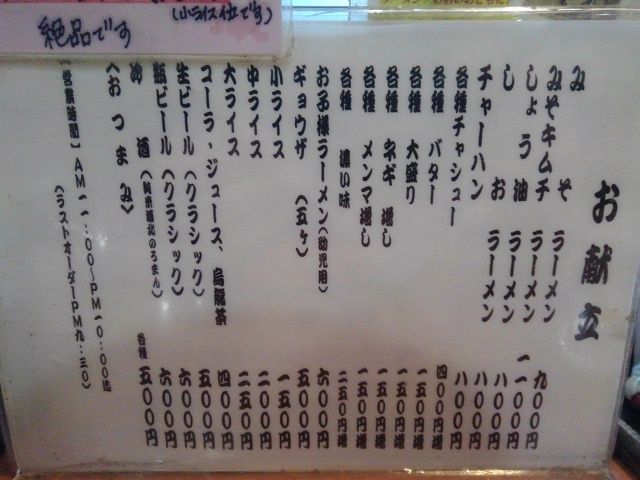 絶品です
(小ライス位です)
お献立
みそラーメン 九〇〇円
みそキムチラーメン 一一〇〇円
しょう油ラーメン 八〇〇円
しおラーメン 八〇〇円
チャーハン 八〇〇円
各種チャシュー 四〇〇円増
各種バター 一五〇円増
各種大盛り 一五〇円増
各種ネギ増し 一五〇円増
各種メンマ増し 一五〇円増
各種濃い味 二五〇円増
お子様ラーメン(幼児用) 六〇〇円
ギョウザ(五ヶ) 五〇〇円
小ライス 一五〇円
中ライス 二〇〇円
大ライス 二五〇円
コーラ・ジュース、烏龍茶 四〇〇円
生ビール(クラシック) 五〇〇円
瓶ビール(クラシック) 六〇〇円
酒 六〇〇円
(おつまみ) 各種 五〇〇円
営業時間】AM一一:〇〇〜PM一〇:〇〇迄
(ラストオーダーPM九:三〇)